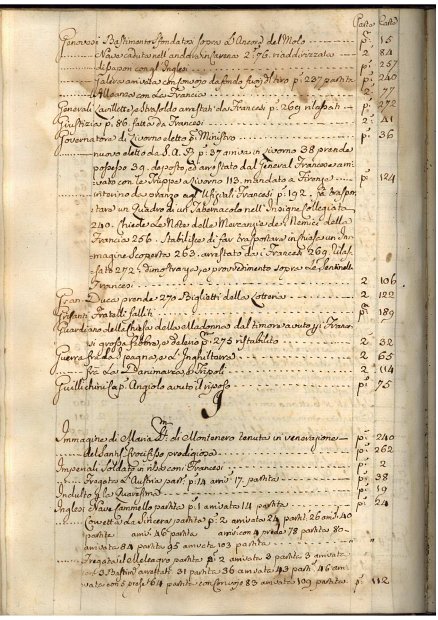 Parte Carte
Genovesi Bastimento sfondatosi sopra l'Ancora del Molo p.ª 15
Nave caduta nell'andar in carena 2.ª 76. riaddirizzata 2 84
di sapon cogl'Inglesi p.ª 257
Galera arrivata con fondo p.ª 237 partita p.ª 240
Alleanza con la Francia 2 77
Generali e Strasoldo arrestati da Francesi p.ª 269 rilassati p.ª 272
Giustizia p.ª 86. fatta da Francesi 2 41
Governatore di Livorno eletto p.ª Ministro p.ª 36
nuovo eletto da S. A. R. p.ª 37 arriva in Livorno 38 prende
possesso 39. deposto, ed arrestato dal General Francese arri
vato con le Truppe a Livorno 113. mandato a Firenze p.ª 124
interino da orazo agl'Ufiziali Francesi p.ª 192. fà traspor
tare un Quadro di un Tabernacolo nell'Insigne Collegiata
240. Chiede le Note delle Mercanzie de Nemici della
Francia 256. Stabilisce di far trasportare in chiesa un Im
magine Scoperta 263. arrestato da i Francesi 269. rilas
sato 272. Dimostranze, e provvedimento sopra le Sentinelle
Francesi 2 106
Gran Duca prende 270 Biglietti della Lotteria 2 122
Fratelli falliti p.ª 189
Guardiano della chiesa della Madonna dal timore avuto p. i France
si grossa febbre, e delirio p.ª 275 ristabilito 2 32
Guerra frà la Spagna, e l'Inghilterra 2 65
frà la Danimarca, e Tripoli 2 114
Guillichini Cap. Angiolo avuto il riposo p.ª 75
Immagine di Maria SS. di Montenero tenuta in venerazione p.ª 240
del Santis. Crocifisso prodigiosa p.ª 262
Imperiali Soldati in con Francesi p.ª 2
Fregata l'Austria part. p.ª 14 arriv. 17. partita p.ª 38
Indulto p. la Quaresima p.ª 19
Inglesi Nave Cammello partita p.ª 1 arrivata 14 partita p.ª 24
Corvetta la Sincera partita p.ª 2 arrivata 24 part. 26 arri. 40
partita arriv. 46 partita arriv. con 4 prede 78 partita 80
arrivata 84 partita 95 arrivata 103 partita
Fregata il Meleagro partita p.ª 2 arrivata 3 partita 3 arrivata
con 3 Bastim. arrestati 31 partita 36 arrivata 43 part. 46 arri
vata con 5 prese 64 partita con convojo 83 arrivata 109 partita p.ª 112